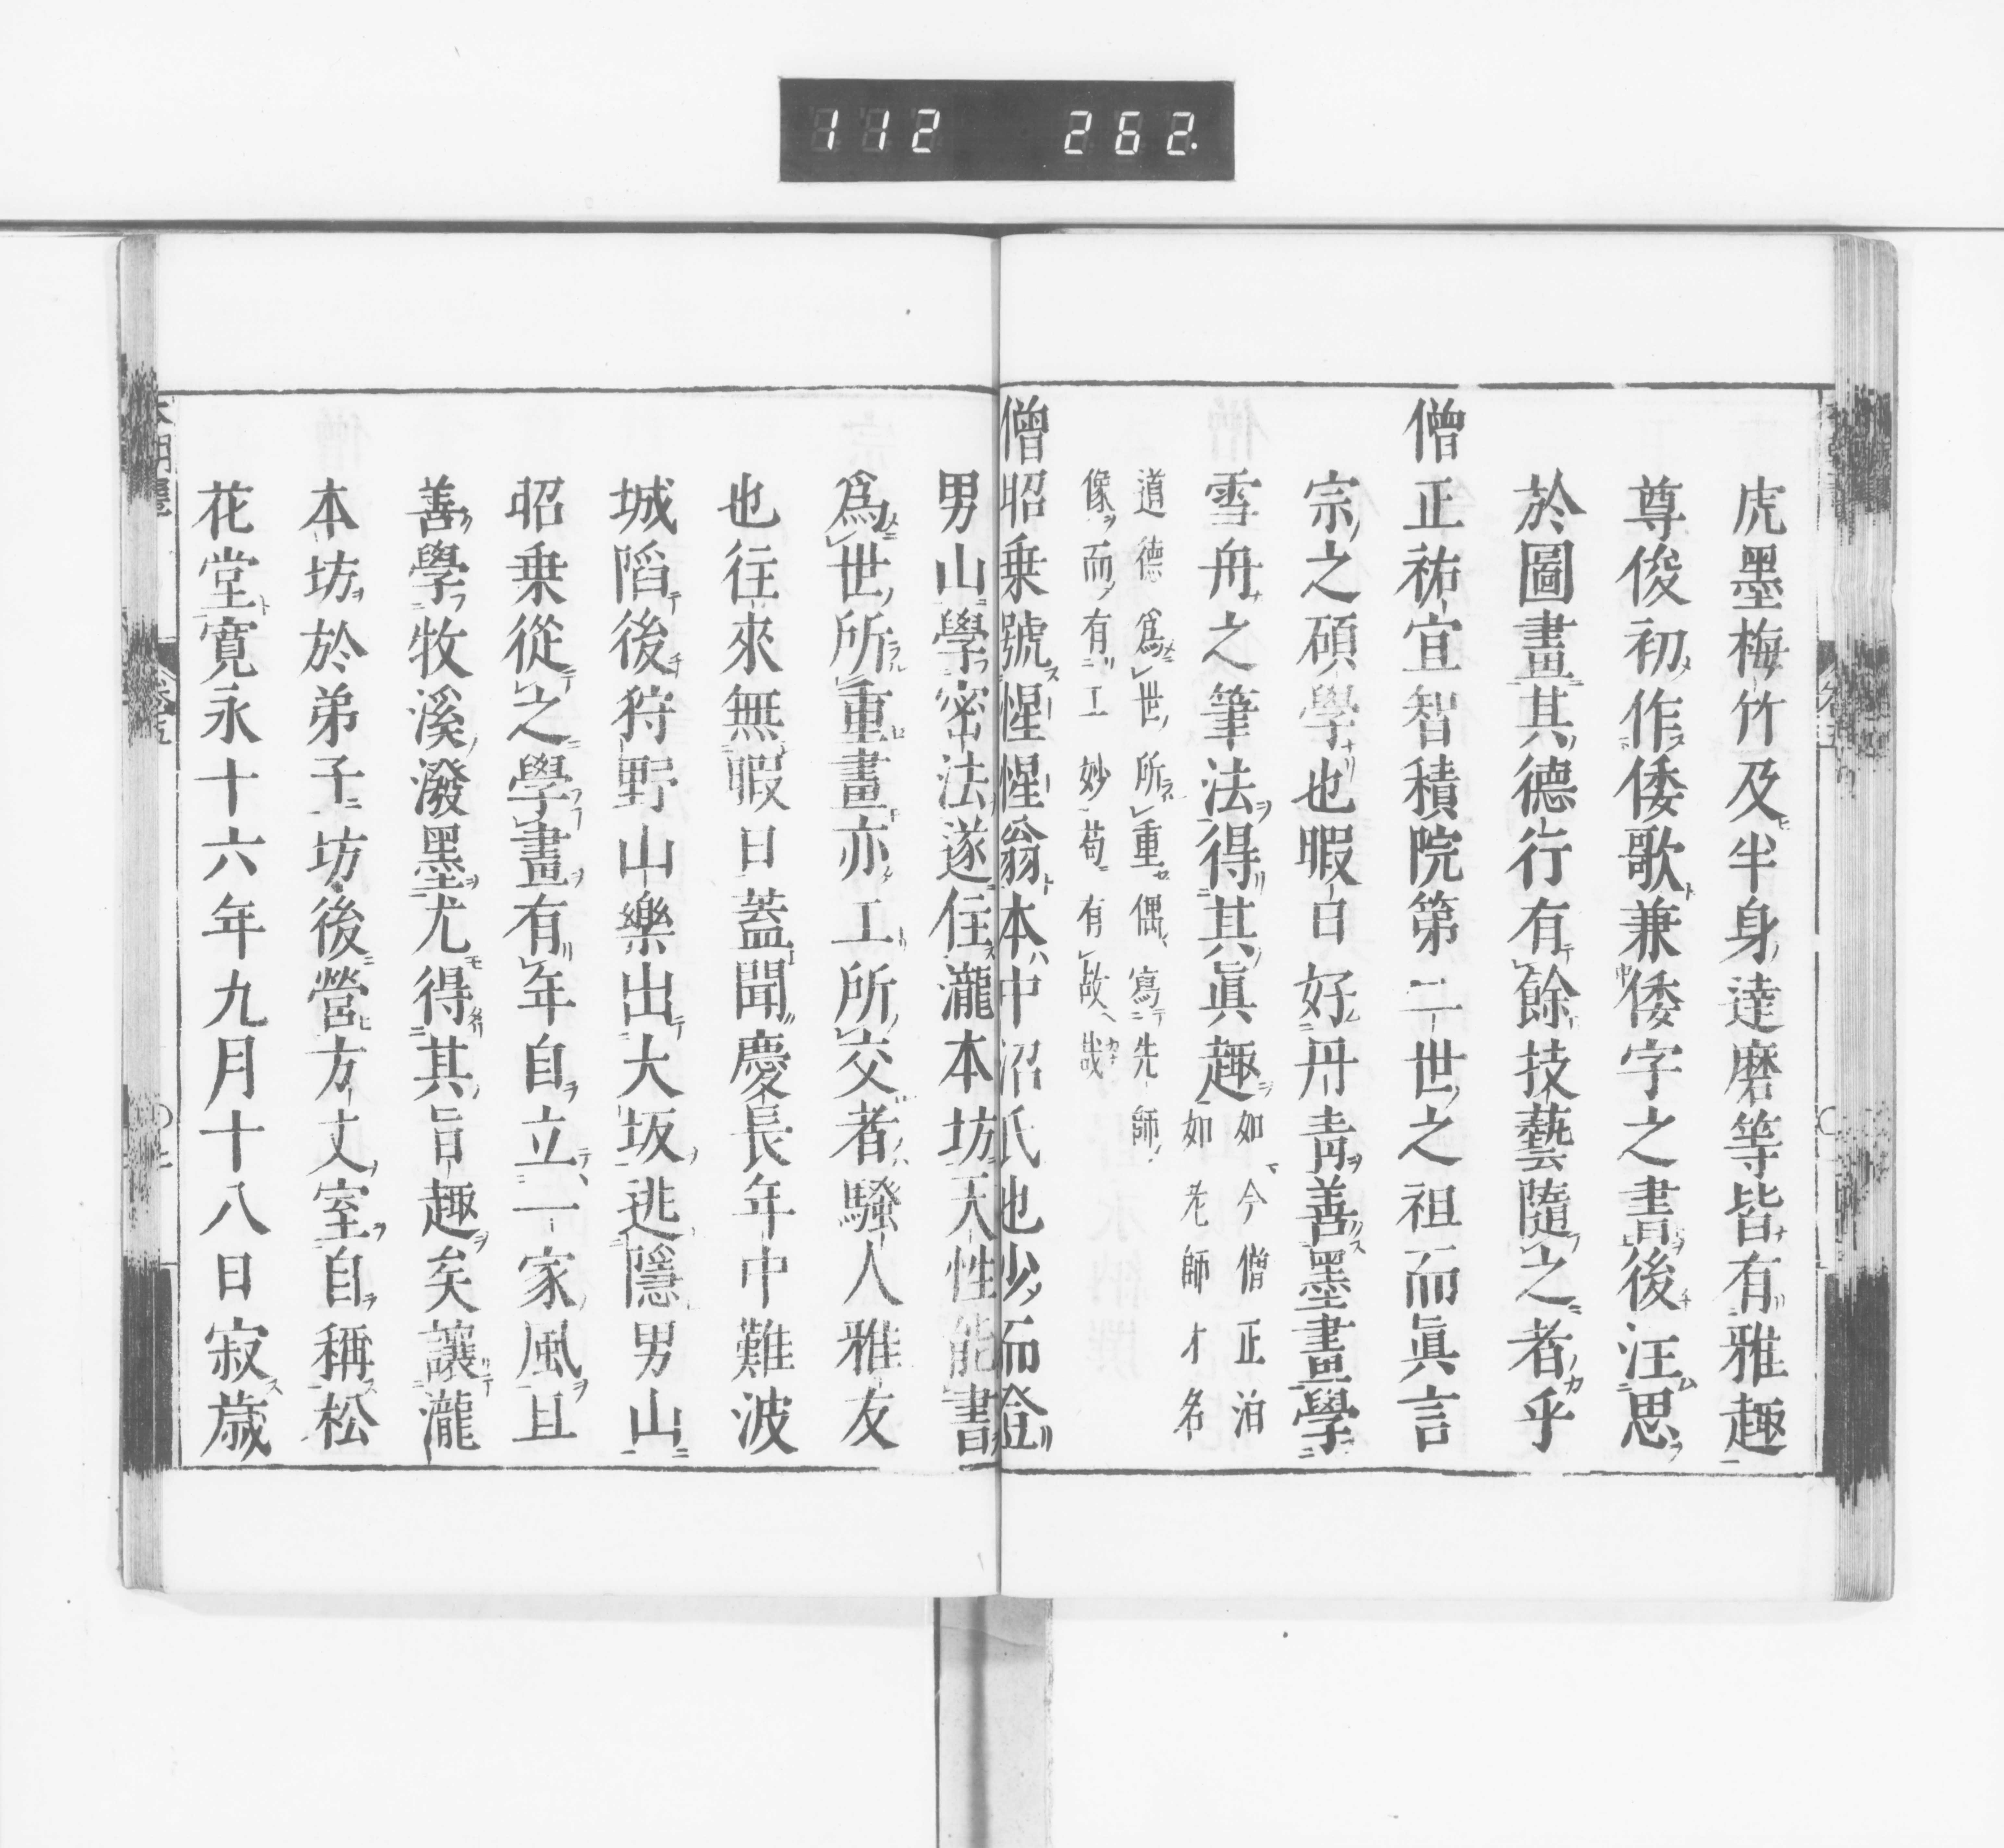 112 262.
虎墨梅竹及半身達磨等皆有雅趣
尊俊初作倭歌兼倭字之書後汪思
於圖畫其德行有餘技藝隨之者乎
僧正祐宜智積院第二世之祖而眞言
宗之碩學也暇日好丹青善墨畫學
雪舟之筆法得其眞趣
如今僧正泊
如老師才名
道德爲世所重偶寫先師
像而有工妙苟有故哉
僧昭乗號惺惺翁本中沼氏也少而登
男山學密法遂住瀧本坊天性能書
爲世所重畫亦工所交者騷人雅友
也往來無暇日蓋聞慶長年中難波
城䧟後狩野山樂出大坂逃隱男山
昭乗從之學畫有年自立一家風且
善學牧溪潑墨尤得其旨趣矣讓瀧
本坊於弟子坊後營方丈室自稱松
花堂寛永十六年九月十八日寂歳